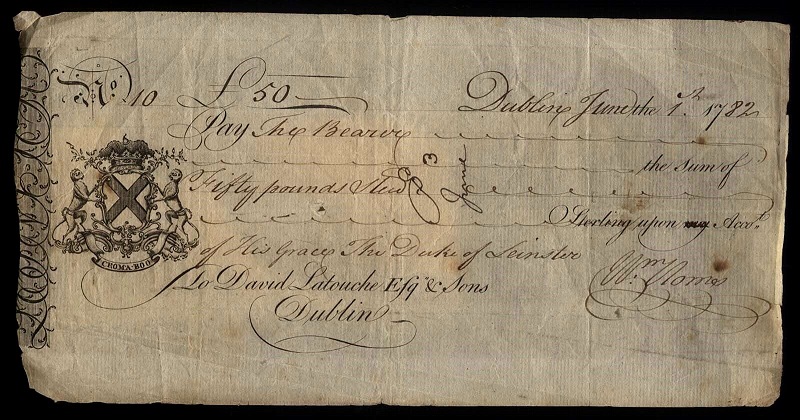 No. 10 £ 50 Dublin June the 1st. 1782
Pay The Bearer
the sum of
Fifty pounds
3 June
Sterling upon my Accot.
of His Grace The Duke of Leinster
CROM A BOO
To David Latouche Esqr. & Sons
Dublin
Wm.